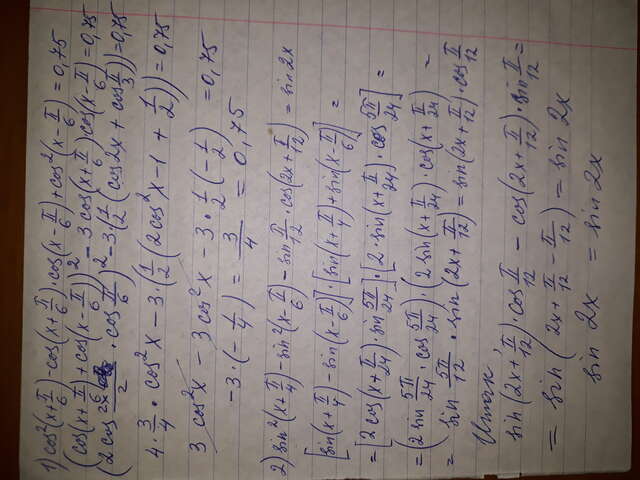 1) cos²(x+π/6)-cos(x+π/6)·cos(x-π/6)+cos²(x-π/6)=0,75
(cos(x+π/6)+cos(x-π/6))² - 3cos(x+π/6)cos(x-π/6)=0,75
(2cos 2x/2 · cos π/6)² - 3·(1/2 (cos2x + cos π/3))=0,75
4·3/4·cos²x - 3·(1/2(2cos²x-1 + 1/2))=0,75
3 cos²x - 3cos²x - 3·1/2(-1/2) = 0,75
-3·(-1/4) = 3/4 = 0,75
2) sin²(x+π/4)-sin²(x-π/6)-sin π/12·cos(2x+π/12) = sin2x
[sin(x+π/4)-sin(x-π/6)]·[sin(x+π/4)+sin(x-π/6)] =
=[2cos(x+π/24)·sin 5π/24]·[2·sin(x+π/24)·cos 5π/24] =
=(2sin 5π/24·cos 5π/24)·(2sin(x+π/24)·cos(x+π/24) =
= sin 5π/12 · sin(2x+π/12)=sin(2x+π/12)·cos π/12
Итак,
sin(2x+π/12)·cos π/12 - cos(2x+π/12)·sin π/12=
= sin(2x+π/12-π/12) = sin 2x
sin 2x = sin 2x